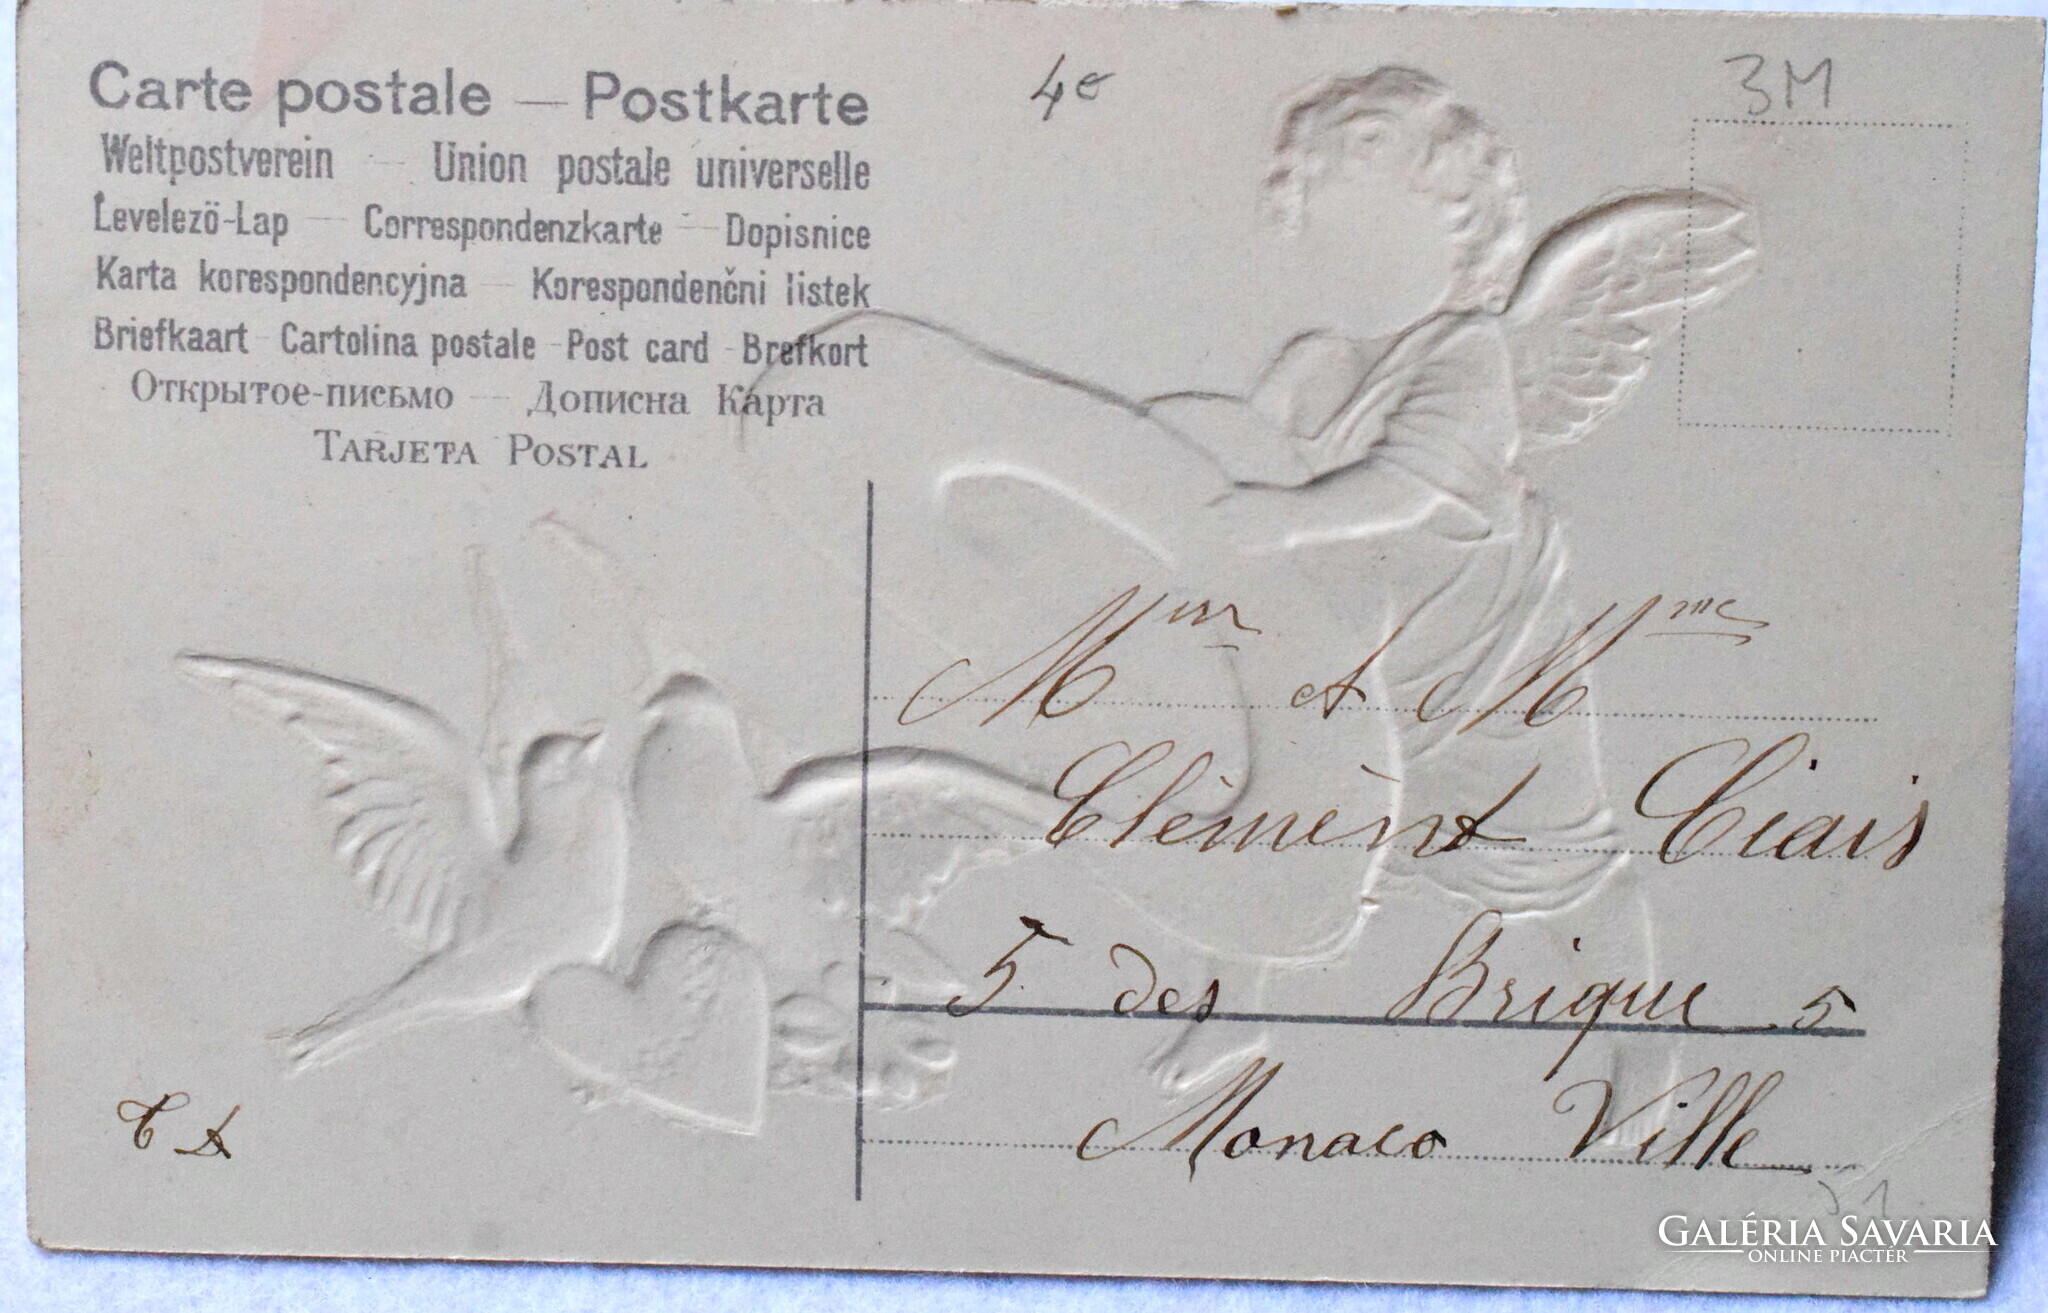 Carte postale — Postkarte
Weltpostverein — Union postale universelle
Levelező-Lap — Correspondenzkarte — Dopisnice
Karta korespondencyjna — Korespondenčni listek
Briefkaart - Cartolina postale - Post card - Brefkort
Открытое-письмо — Дописна Карта
TARJETA POSTAL
3M
Mr et Mme
Clèmènt Ciais
5 des Brique 5
Monaco Ville
GALÉRIA SAVARIA
ONLINE PIACTÉR